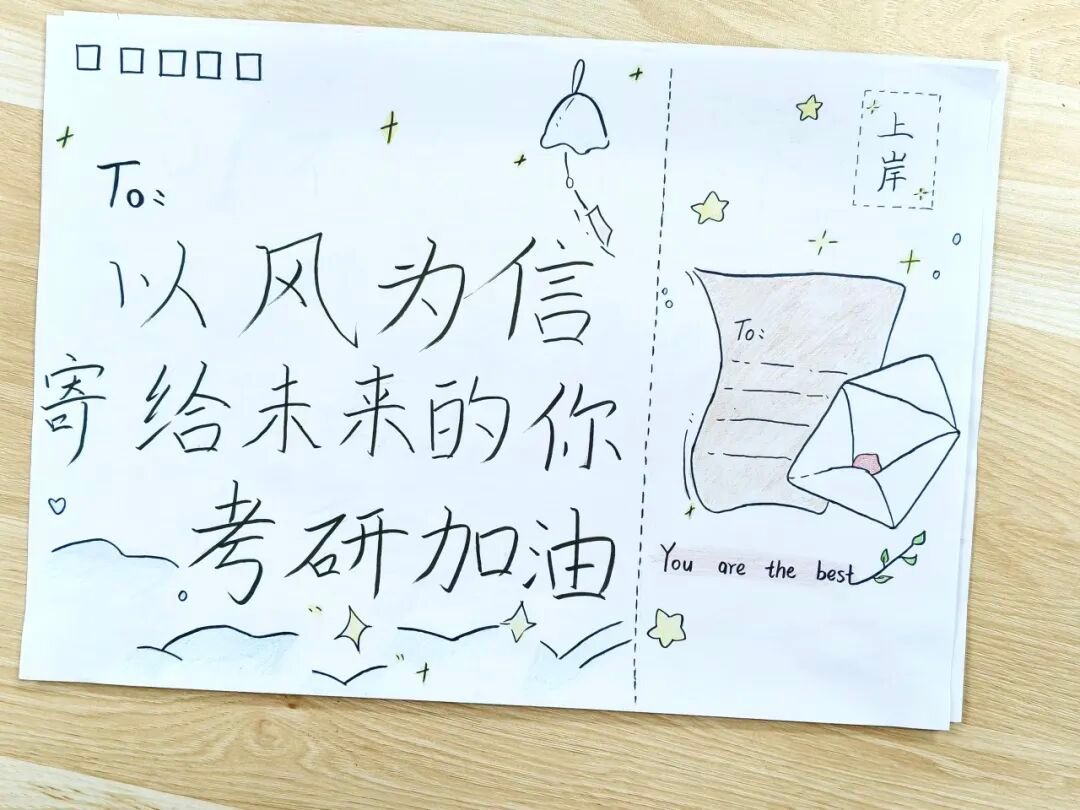 To:
以风为信
寄给未来的你
考研加油
上
岸
To:
You are the best